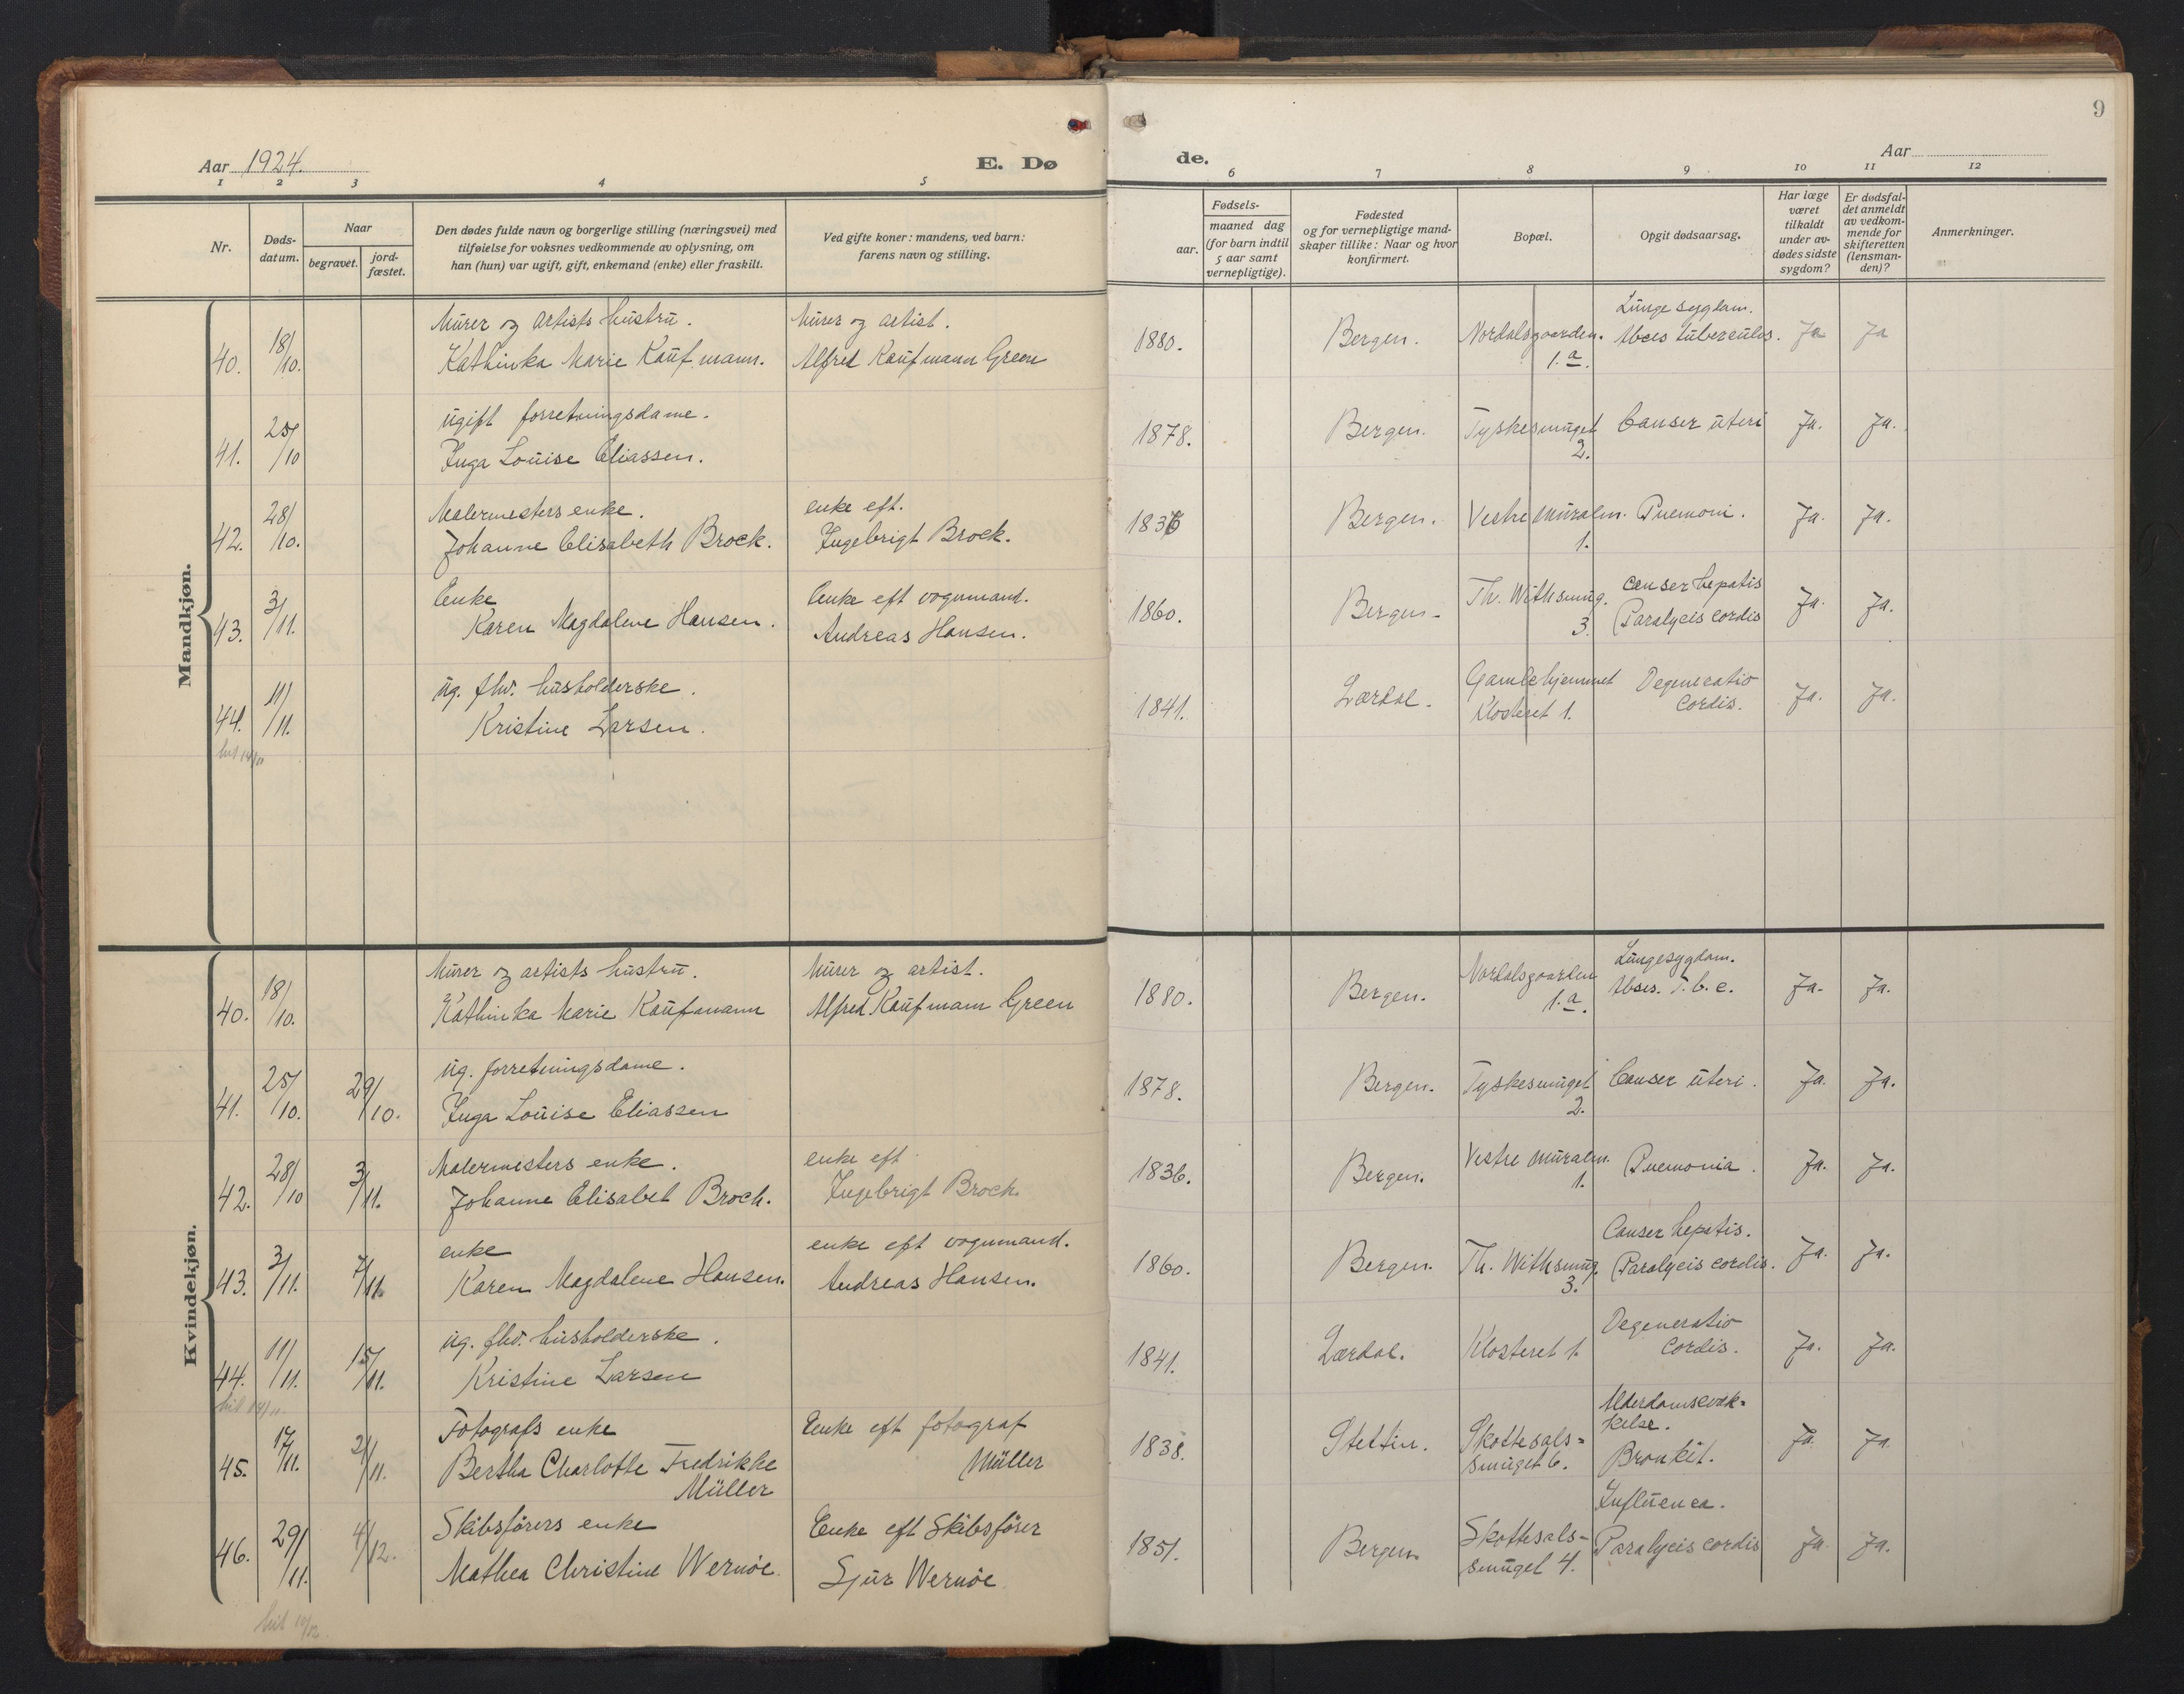 Aar 1924.
E. Dø
de.
Aar
9
1 2 3 4 5 6 7 8 9 10 11 12
Nr.
Døds-
datum.
Naar
begravet.
jord-
fæstet.
Den dødes fulde navn og borgerlige stilling (næringsvei) med
tilføielse for voksnes vedkommende av oplysning, om
han (hun) var ugift, gift, enkemand (enke) eller fraskilt.
Ved gifte koner: mandens, ved barn:
farens navn og stilling.
Fødsels-
aar.
maaned dag
(for barn indtil
5 aar samt
vernepligtige).
Fødested
og for vernepligtige mand-
skaper tillike: Naar og hvor
konfirmert.
Bopæl.
Opgit dødsaarsag.
Har læge
været
tilkaldt
under av-
dødes sidste
sygdom?
Er dødsfal-
det anmeldt
av vedkom-
mende for
skifteretten
(lensman-
den)?
Anmerkninger.
Mandkjøn.
Murer og artists hustru. Murer og artist. Lunge sygdam.
40. 18/10. Kathinka Marie Kaufmann. Alfred Kaufmann Green 1880. Bergen. Nordalsgaarden. Abces tuberculos. Ja Ja
1.a.
ugift forretningsdame.
41. 25/10 Inga Louise Eliassen. 1878. Bergen. Tyskesmuget Canser uteri Ja. Ja.
2.
Malermesters enke. enke eft.
42. 28/10. Johanne Elisabeth Brock. Ingebrigt Brock. 1836 Bergen. Vestre Muralm. Pnemoni. Ja. Ja.
1.
Enke Enke eft vognmand. Th. Withsmug. Canser hepatis
43. 3/11. Karen Magdalene Hansen. Andreas Hansen. 1860. Bergen. 3. Paralycis cordis Ja. Ja.
ug. fhv. husholderske. Gamlehjemmet Degeneratio
44. 11/11. Kristine Larsen. 1841. Lærdal. Klosteret 1. Cordis. Ja. Ja.
hil 14/11
Kvindekjøn.
Murer og artists hustru. Murer og artist. Nordalsgaarden Lungesygdam.
40. 18/10. Kathinka Marie Kaufmann Alfred Kaufmann Green 1880. Bergen. 1.a. Abses. T.b.c. Ja. Ja.
ug. forretningsdame.
41. 25/10. 29/10. Inga Louise Eliassen 1878. Bergen. Tyskesmuget Canser uteri. Ja. Ja.
2.
Malermesters enke. enke eft
42. 28/10 3/11. Johanne Elisabet Broch. Ingebrigt Broch. 1836. Bergen. Vestre Muralm. Pnemonia. Ja. Ja.
1.
enke enke eft vognmand. Canser hepatis.
43. 3/11. 7/11. Karen Magdalene Hansen. Andreas Hansen. 1860. Bergen. Th. Withsmug. Paralycis cordis. Ja. Ja.
3.
ug. fhv. husholderske. Degeneratio
44. 11/11. 15/11. Kristine Larsen 1841. Lærdal. Klosteret 1. Cordis. Ja. Ja.
hil 14/11
Fotografs enke Enke eft fotograf Alderdomssvæk=
kelse.
45. 17/11. 21/11. Bertha Charlotte Fredrikke Müller 1838. Stettin. Skottesals= Bronkit. Ja. Ja.
Müller smuget 6.
Skibsførers enke Enke eft Skibsfører Influenca.
46. 29/11. 4/12. Mathea Christine Wernöe. Sjur Wernöe. 1851. Bergen Skottesals= Paralycis cordis Ja. Ja.
smuget 4.
hil 10/12.